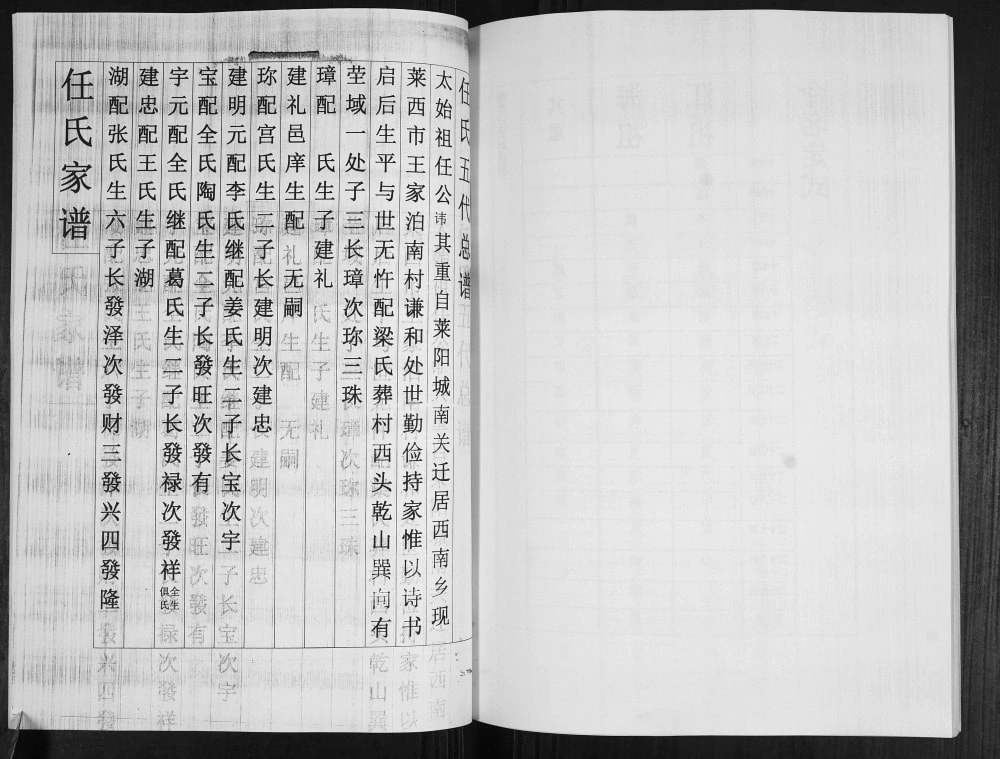 任氏五代总谱
太始祖任公讳其重自莱阳城南关迁居西南乡现
莱西市王家泊南村谦和处世勤俭持家惟以诗书
启后生平与世无忤配梁氏葬村西头乾山巽向有
茔域一处子三长璋次珎三珠
璋配　氏生子建礼
建礼邑庠生配　无嗣
珎配宫氏生二子长建明次建忠
建明元配李氏继配姜氏生二子长宝次宇
宝配全氏陶氏生二子长發旺次發有
宇元配全氏继配葛氏生二子长發禄次發祥俱全氏生
建忠配王氏生子湖
湖配张氏生六子长發泽次發财三發兴四發隆
任氏家谱